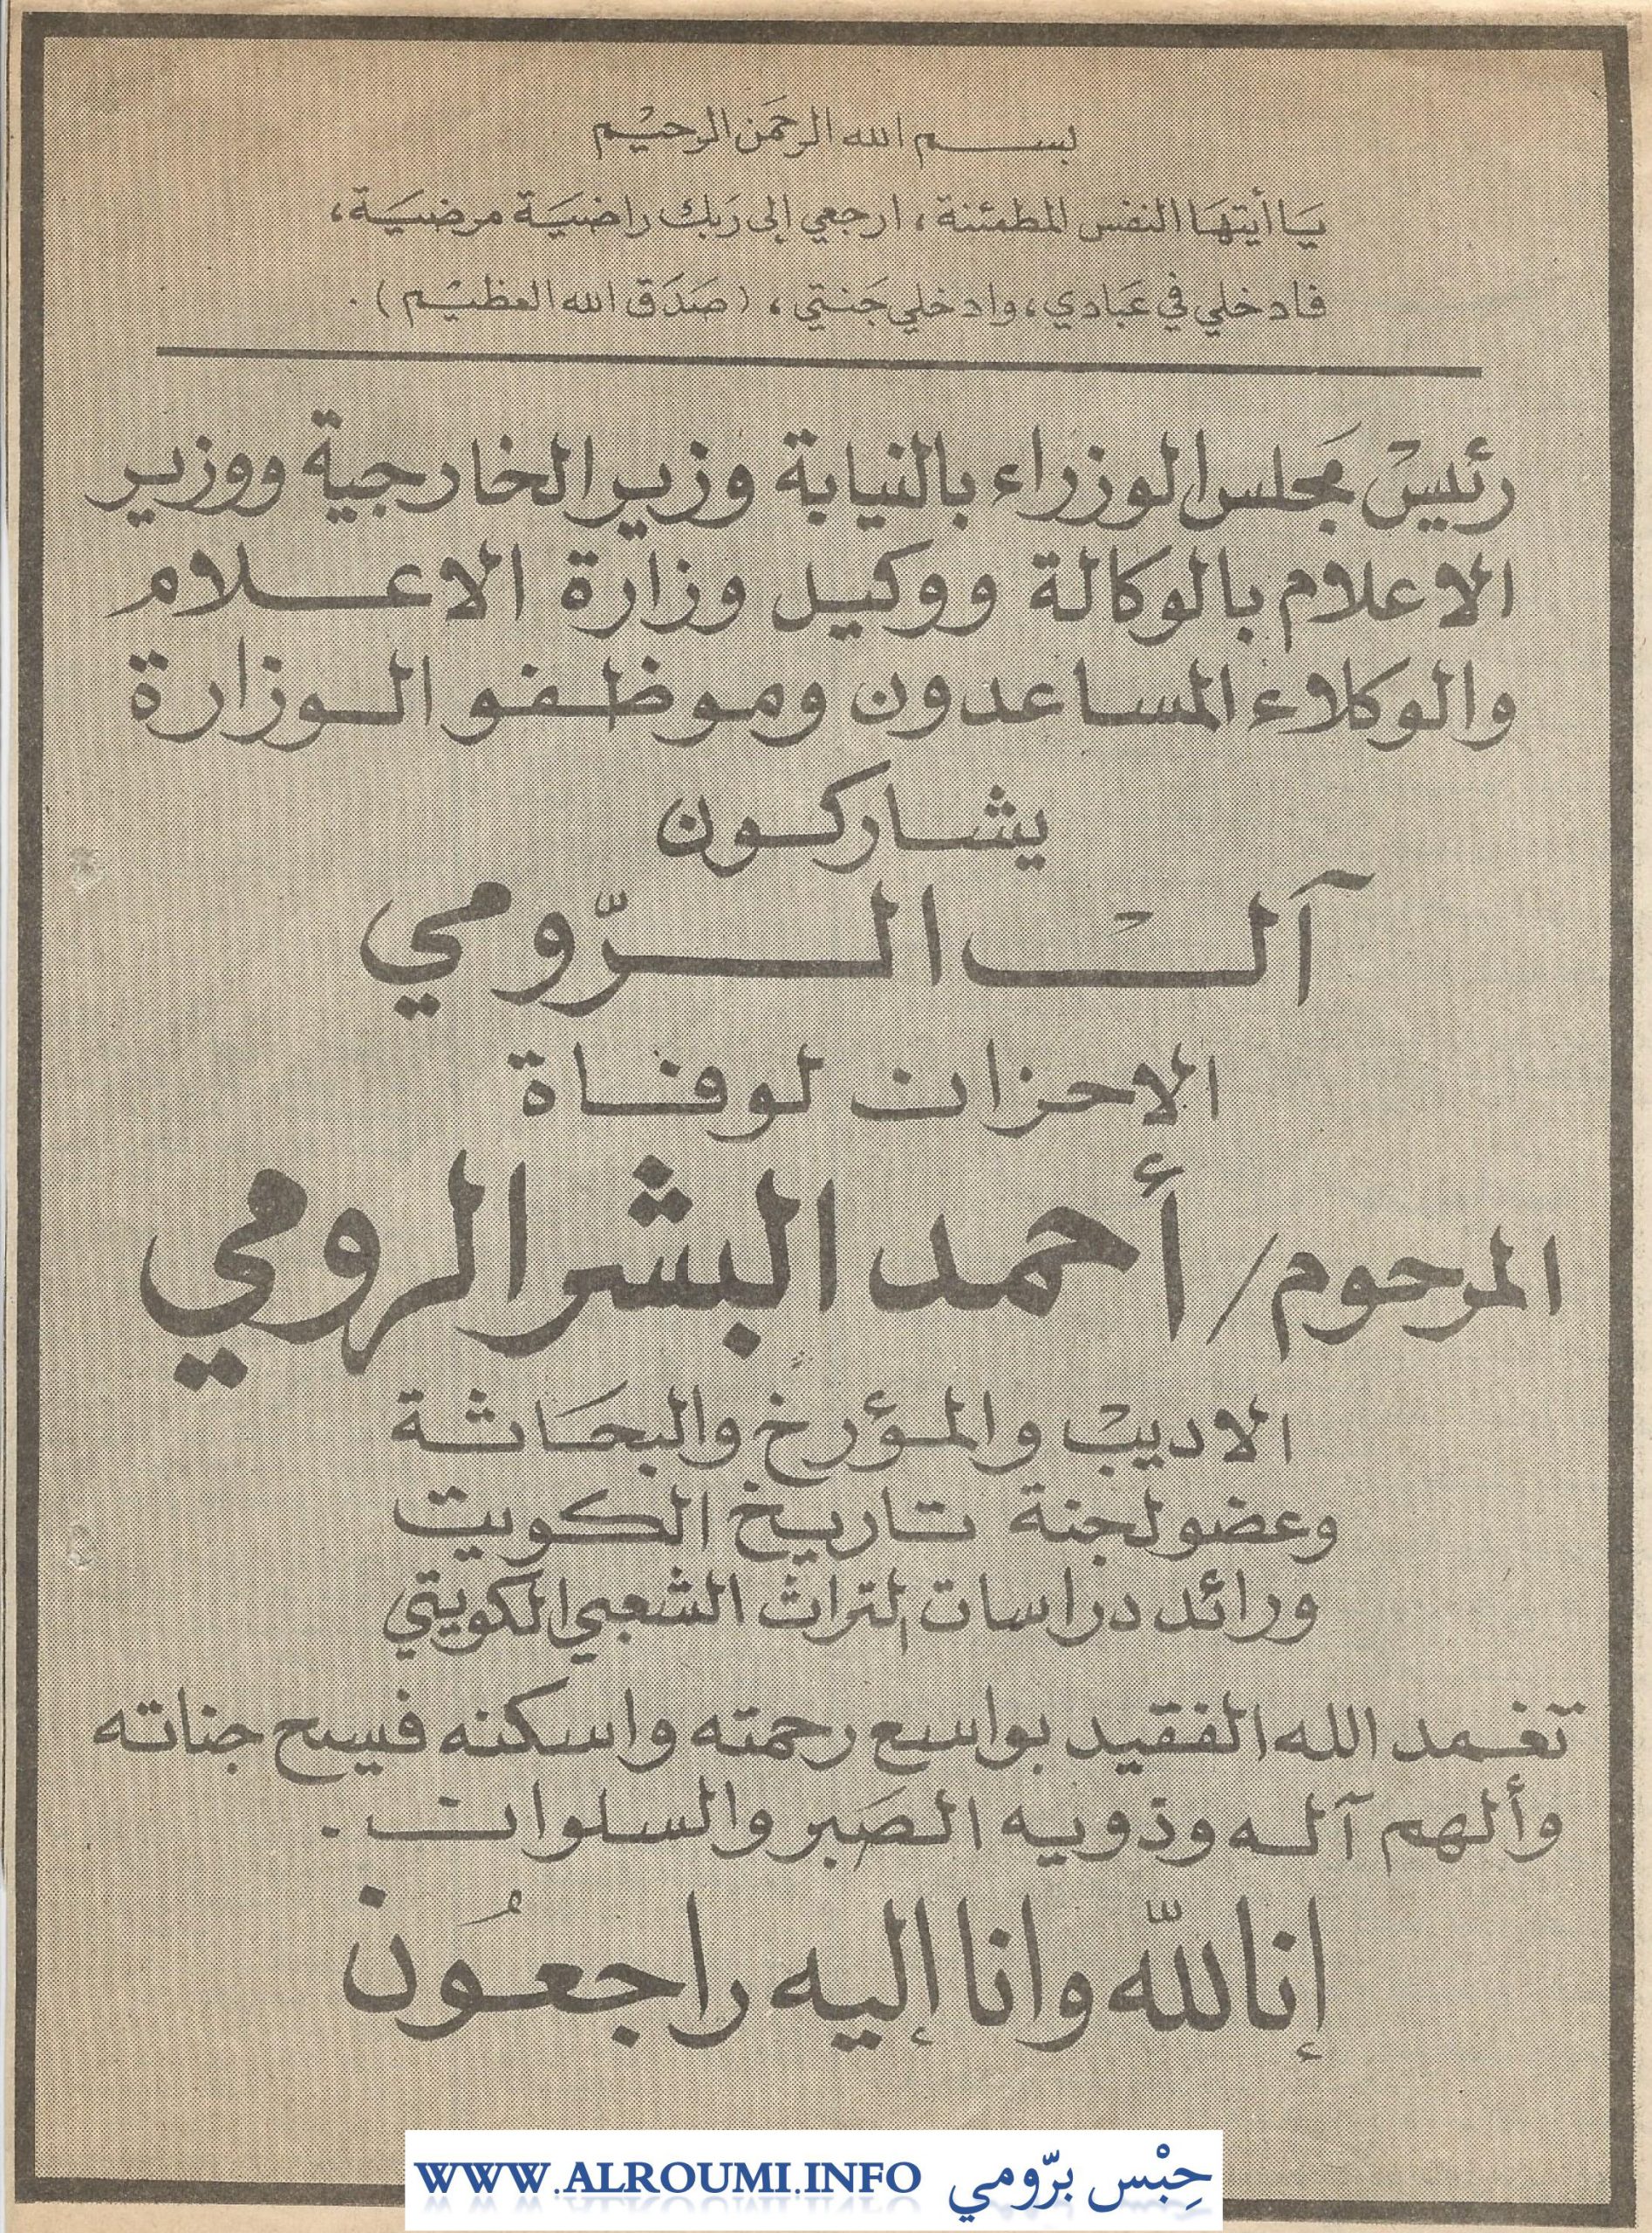 بسم الله الرحمن الرحيم
يا أيتها النفس المطمئنة، ارجعي إلى ربك راضية مرضية،
فادخلي في عبادي، وادخلي جنتي، (صدق الله العظيم).
رئيس مجلس الوزراء بالنيابة وزير الخارجية ووزير
الاعلام بالوكالة ووكيل وزارة الاعلام
والوكلاء المساعدون وموظفو الوزارة
يشاركون
آل الرّومي
الاحزان لوفاة
المرحوم / أحمد البشر الرومي
الاديب والمؤرخ والبحاثة
وعضو لجنة تاريخ الكويت
ورائد دراسات التراث الشعبي الكويتي
تغمد الله الفقيد بواسع رحمته واسكنه فسيح جناته
وألهم آله وذويه الصبر والسلوان.
إنا لله وانا إليه راجعون
WWW.ALROUMI.INFO حِبْس برّومي